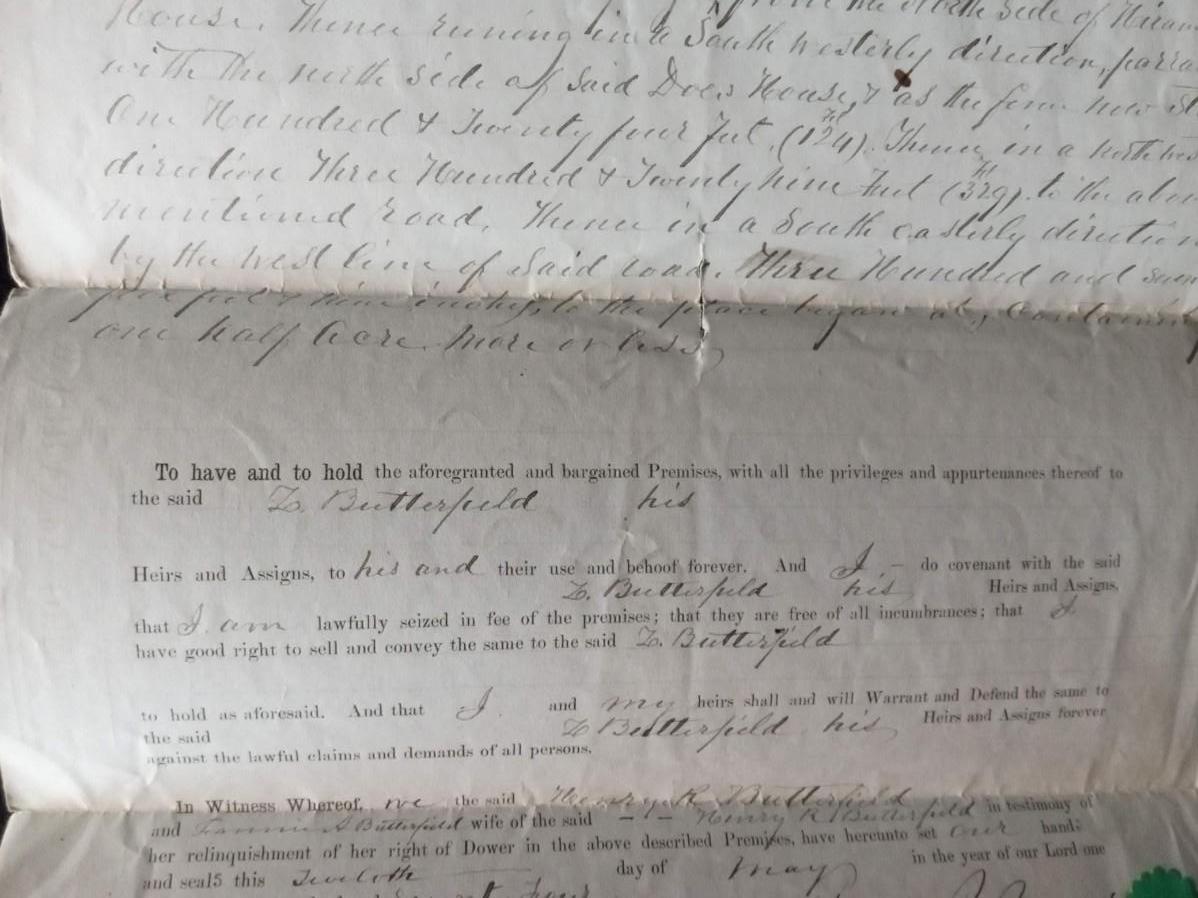 House. Thence runing in a South westerly direction, parra
with the north side of Said Does House, & as the fence now st
One Hundred & Twenty four feet, (124) ft. Thence in a north wes
direction Three Hundred & Twenty nine Feet (329) ft to the abov
mentioned road. Thence in a South easterly direction
by the west line of said road. Three Hundred and
feet & nine inches, to the place began at, Containin
one half Acre more or less,
To have and to hold the aforegranted and bargained Premises, with all the privileges and appurtenances thereof to
the said Z. Butterfield his
Heirs and Assigns, to his and their use and behoof forever. And I – do covenant with the said
Z. Butterfield his Heirs and Assigns,
that I am lawfully seized in fee of the premises; that they are free of all incumbrances; that I
have good right to sell and convey the same to the said Z. Butterfield
to hold as aforesaid. And that I and my heirs shall and will Warrant and Defend the same to
the said Z Butterfield his Heirs and Assigns forever
against the lawful claims and demands of all persons.
In Witness Whereof, we the said Henry R Butterfield
and Fannie A Butterfield wife of the said Henry R Butterfield in testimony of
her relinquishment of her right of Dower in the above described Premises, have hereunto set our hands
and seals this Twelfth day of May in the year of our Lord one